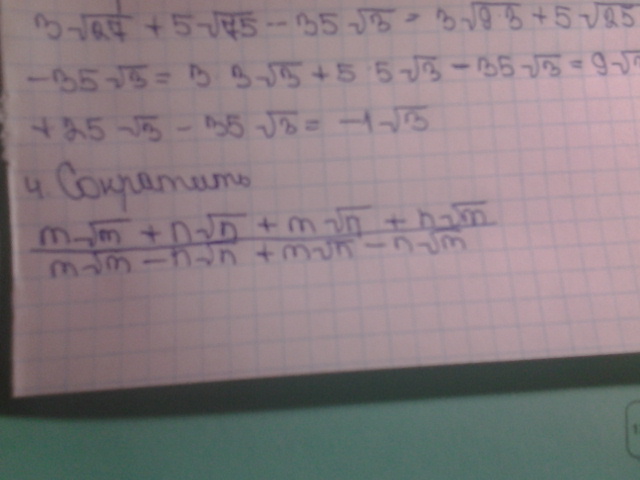 3√27 + 5√75 - 35√3 = 3√9·3 + 5√25
-35√3 = 3·3√3 + 5·5√3 - 35√3 = 9√3
+25√3 - 35√3 = -1√3
4. Сократить
m√m + n√n + m√n + n√m
m√m - n√n + m√n - n√m